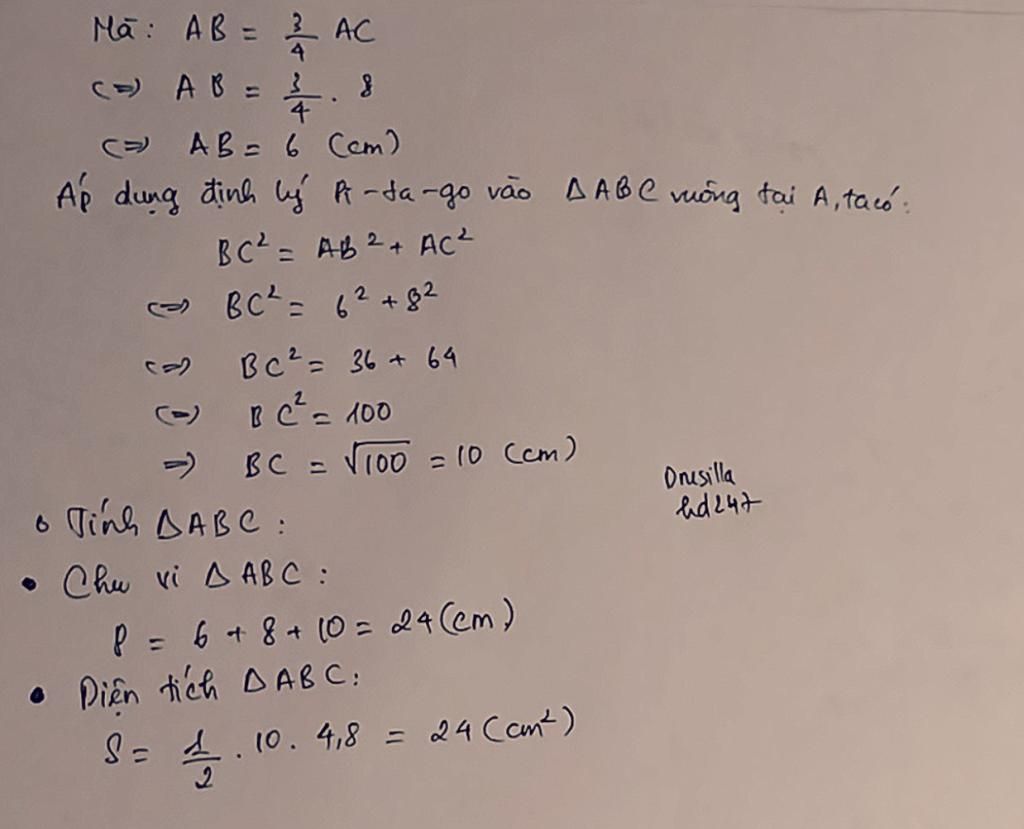 Mà: AB = 3/4 AC
<=> AB = 3/4 . 8
<=> AB = 6 (cm)
Áp dụng định lý Pi-ta-go vào ΔABC vuông tại A, ta có:
BC² = AB² + AC²
<=> BC² = 6² + 8²
<=> BC² = 36 + 64
<=> BC² = 100
=> BC = √100 = 10 (cm)
Drusilla
hd247
Tính ΔABC:
• Chu vi ΔABC:
P = 6 + 8 + 10 = 24 (cm)
• Diện tích ΔABC:
S = 1/2 . 10 . 4,8 = 24 (cm²)